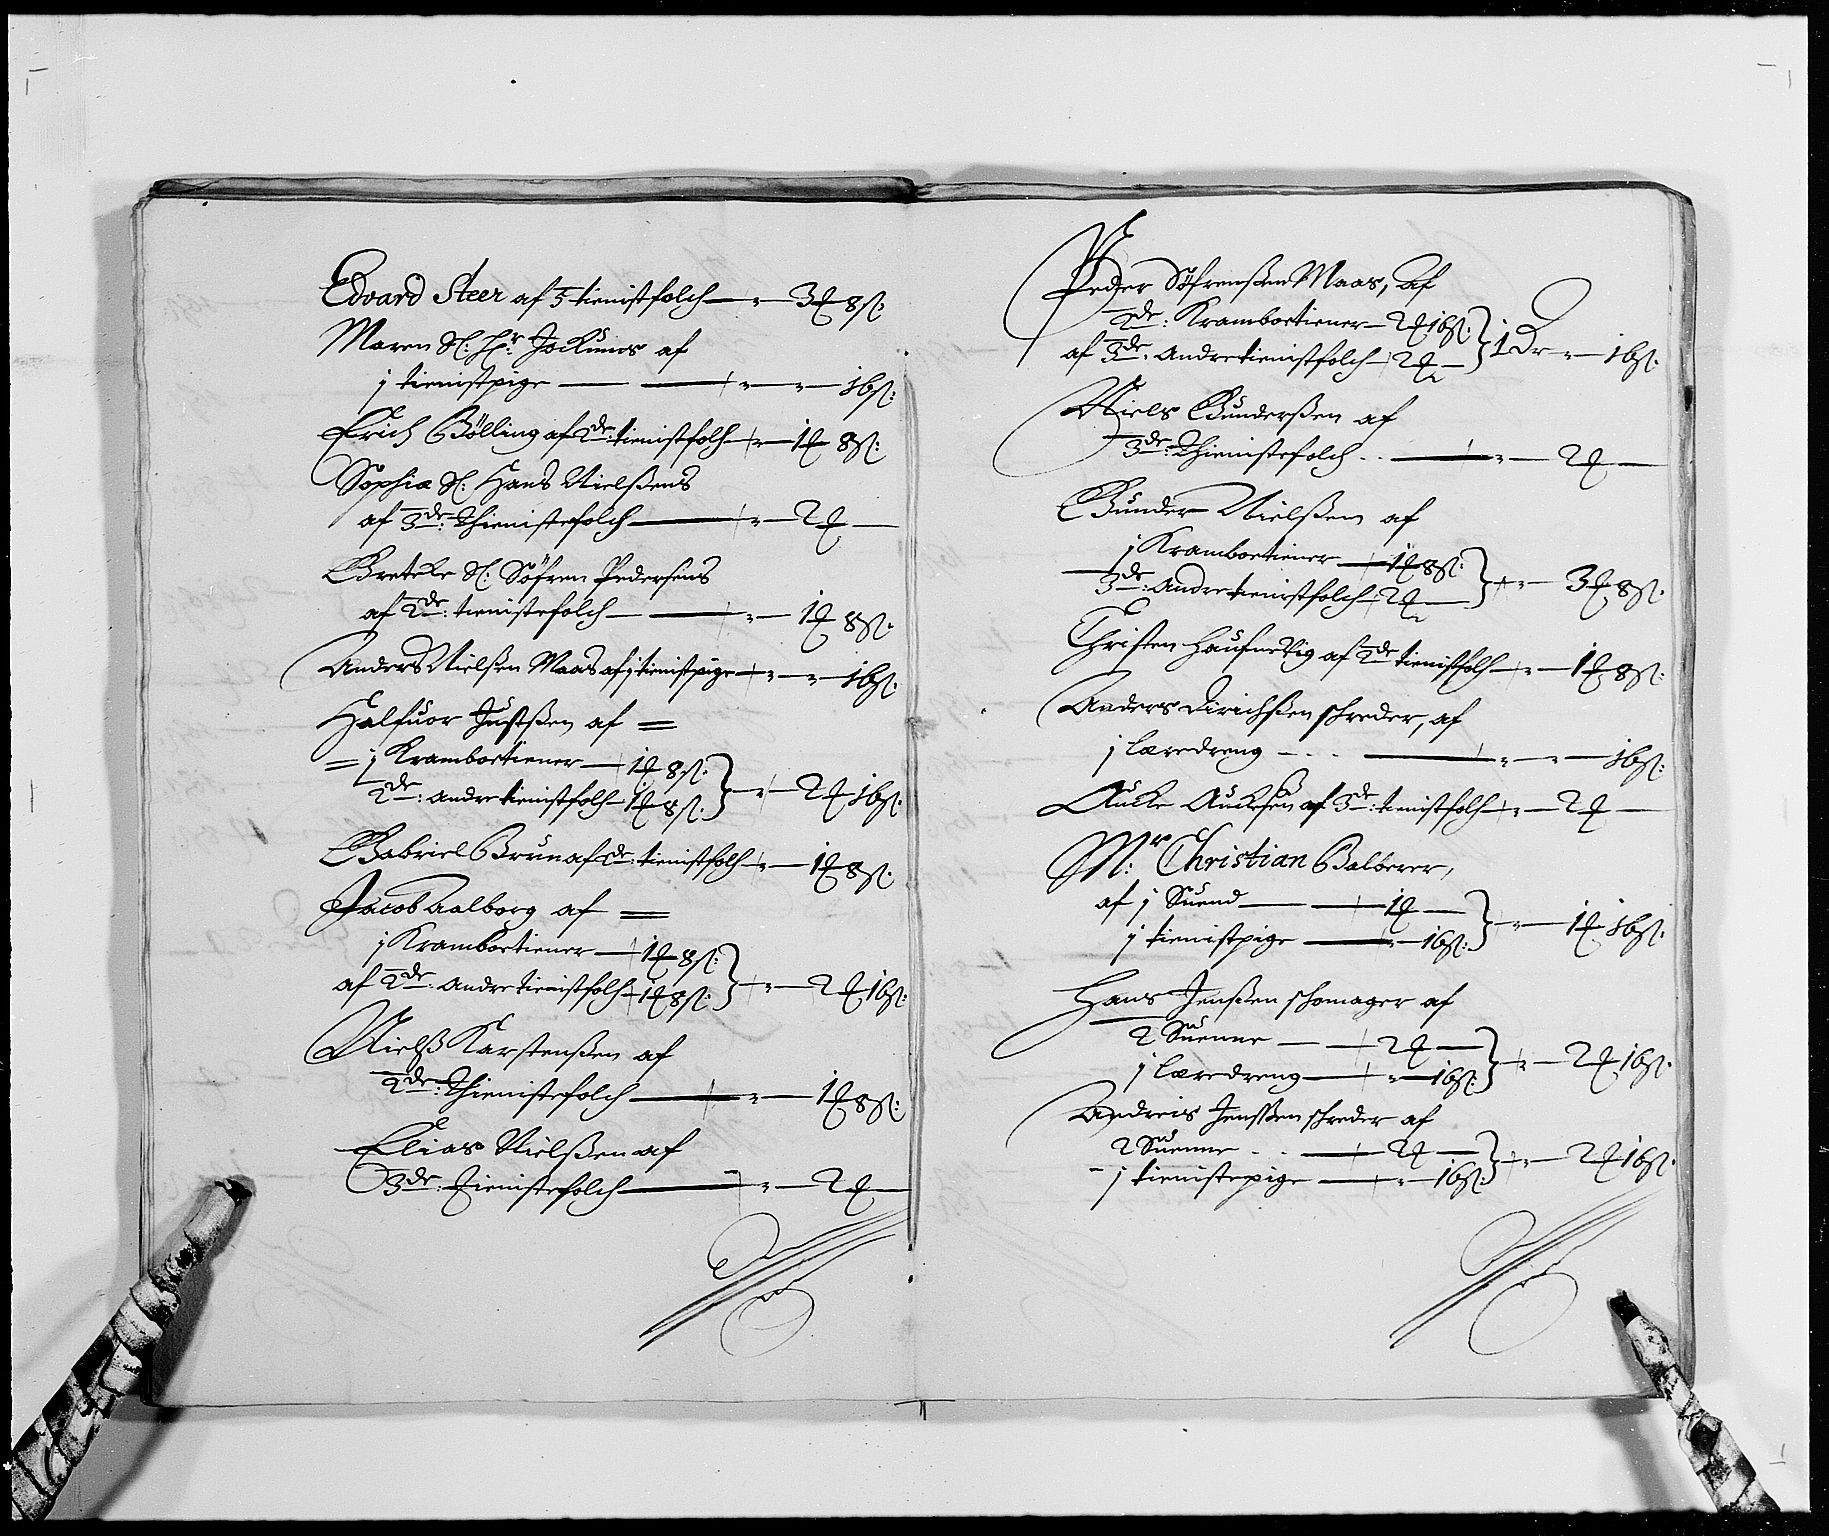 Edvard Steer af 5 tienistfolch — " — 3 ₰ 8 ß:
Maren Sl: Hr: Jockums af
j tienistpige — — " — " — 16 ß:
Erich Bölling af 2de: tienistfolch — " — 1 ₰ 8 ß:
Sophia Sl: Hans Nielßens
af 3de: Thienistefolch — " — 2 ₰ —
Gretche Sl: Söfren Pedersens
af 2de: tienistefolch — — " — 1 ₰ 8 ß:
Anders Nielßen Maas af j tienistpige — " — " — 16 ß:
Halfuor Justßen af =
= j Kramboetiener — 1 ₰ 8 ß:
2de: andre tienistfolch 1 ₰ 8 ß: } — " — 2 ₰ 16 ß:
Gabriel Brun af 2de: tienistfolch — " — 1 ₰ 8 ß:
Jacob Aalborg af =
j Kramboetiener — 1 ₰ 8 ß:
af 2de: andre tienistfolch 1 ₰ 8 ß: } — " — 2 ₰ 16 ß:
Nielß Karstenßen af
2de: Thienistefolch — " — 1 ₰ 8 ß:
Elias Nielßen af
3de: Tienistefolch — " — 2 ₰ —
Peder Söfrenßen Maas, af
2de: Kramboetiener — 2 ₰ 16 ß:
af 3de: Andre tienistfolch 2 ₰ — } 1 Dr — " — 16 ß:
Niels Gunderßen af
3de: Thienistefolch . . — " — 2 ₰ —
Gunder Nielßen af
j Kramboetiener — 1 ₰ 8 ß:
3de: Andre tienistfolch 2 ₰ — } " — 3 ₰ 8 ß:
Christen af 2de tienistfolch — " — 1 ₰ 8 ß:
Anders Dirichßen schreder, af
j læredreng — . . . — " — " — 16 ß:
Aucke Auckesen af 3de: tienistfolch — " — 2 ₰ —
Mr: Christian Balberer,
af j Suend — — 1 ₰ —
j tienistpige — " — 16 ß: } " — 1 ₰ 16 ß:
Hans Jenßen schomager af
2 Suenne — — 2 ₰ —
j læredreng — " — 16 ß: } " — 2 ₰ 16 ß:
Andreis Jenßen schreder af
2 Suenne . . — 2 ₰ —
– j tienistepige — " — 16 ß: } " — 2 ₰ 16 ß: